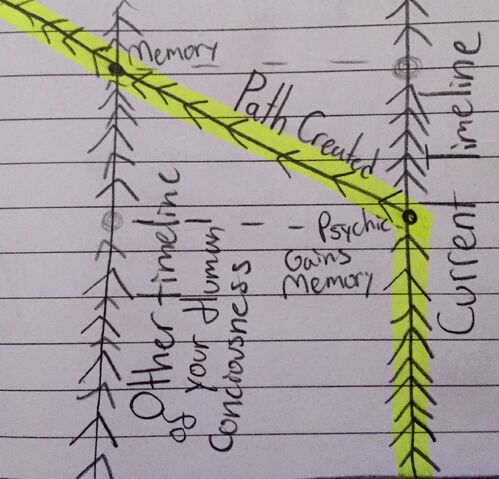 Memory
Path Created
Current Timeline
Psychic
Gains
Memory
Other timeline
of your Human
Conciousness